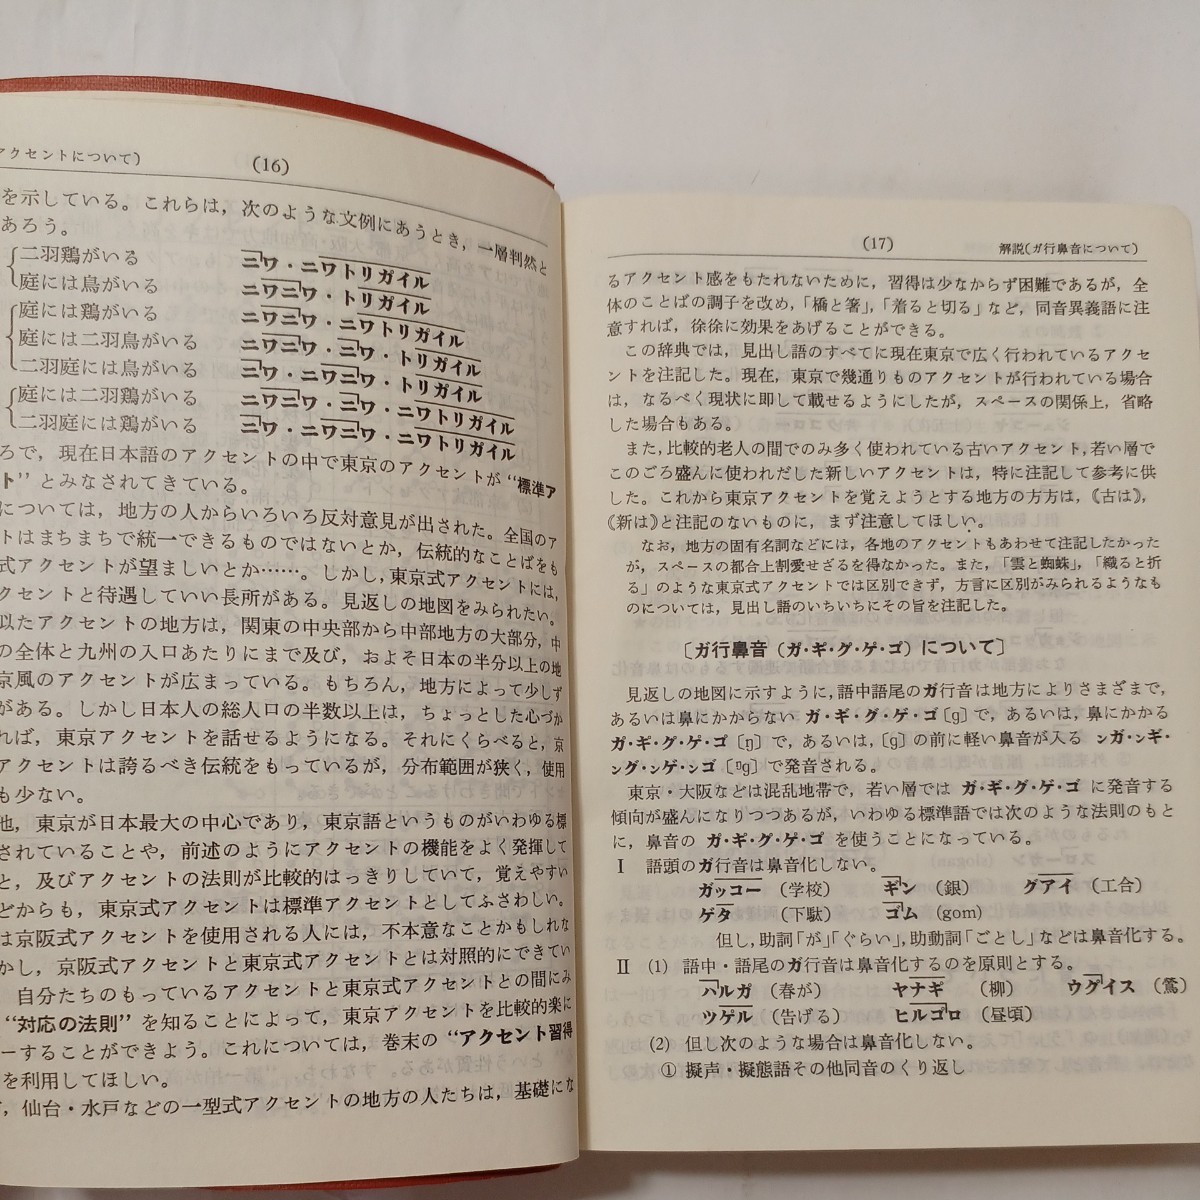 アクセントについて)
(16)
を示している。これらは，次のような文例にあうとき，一層判然と
あろう。
二羽鶏がいる ニワ・ニワトリガイル
庭には鳥がいる ニワニワ・トリガイル
庭には鶏がいる ニワニワ・ニワトリガイル
庭には二羽鳥がいる ニワニワ・ニワ・トリガイル
二羽庭には鳥がいる ニワ・ニワニワ・トリガイル
庭には二羽鶏がいる ニワニワ・ニワ・ニワトリガイル
二羽庭には鶏がいる ニワ・ニワニワ・ニワトリガイル
ろで，現在日本語のアクセントの中で東京のアクセントが“標準ア
ト”とみなされてきている。
については，地方の人からいろいろ反対意見が出された。全国のア
トはまちまちで統一できるものではないとか，伝統的なことばをも
式アクセントが望ましいとか……。しかし，東京式アクセントには，
クセントと待遇していい長所がある。見返しの地図をみられたい。
似たアクセントの地方は，関東の中央部から中部地方の大部分，中
の全体と九州の入口あたりにまで及び，およそ日本の半分以上の地
京風のアクセントが広まっている。もちろん，地方によって少しず
がある。しかし日本人の総人口の半数以上は，ちょっとした心づか
れば，東京アクセントを話せるようになる。それにくらべると，京
アクセントは誇るべき伝統をもっているが，分布範囲が狭く，使用
も少ない。
他，東京が日本最大の中心であり，東京語というものがいわゆる標
されていることや，前述のようにアクセントの機能をよく発揮して
と，及びアクセントの法則が比較的はっきりしていて，覚えやすい
どからも，東京式アクセントは標準アクセントとしてふさわしい。
は京阪式アクセントを使用される人には，不本意なことかもしれな
かし，京阪式アクセントと東京式アクセントとは対照的にできてい
自分たちのもっているアクセントと東京式アクセントとの間にみ
“対応の法則”を知ることによって，東京アクセントを比較的楽に
ーすることができよう。これについては，巻末の“アクセント習得
を利用してほしい。
，仙台・水戸などの一型式アクセントの地方の人たちは，基礎にな
(17)
解説(ガ行鼻音について)
るアクセント感をもたれないために，習得は少なからず困難であるが，全
体のことばの調子を改め，「橋と箸」，「着ると切る」など，同音異義語に注
意すれば，徐徐に効果をあげることができる。
この辞典では，見出し語のすべてに現在東京で広く行われているアクセ
ントを注記した。現在，東京で幾通りものアクセントが行われている場合
は，なるべく現状に即して載せるようにしたが，スペースの関係上，省略
した場合もある。
また，比較的老人の間でのみ多く使われている古いアクセント，若い層で
このごろ盛んに使われだした新しいアクセントは，特に注記して参考に供
した。これから東京アクセントを覚えようとする地方の方方は，《古は》，
《新は》と注記のないものに，まず注意してほしい。
なお，地方の固有名詞などには，各地のアクセントもあわせて注記したかった
が，スペースの都合上割愛せざるを得なかった。また，「雲と蜘蛛」，「織ると折
る」のような東京式アクセントでは区別できず，方言に区別がみられるようなも
のについては，見出し語のいちいちにその旨を注記した。
〔ガ行鼻音（ガ・ギ・グ・ゲ・ゴ）について〕
見返しの地図に示すように，語中語尾のガ行音は地方によりさまざまで，
あるいは鼻にかからない ガ・ギ・グ・ゲ・ゴ〔g〕で，あるいは，鼻にかかる
ガ・ギ・グ・ゲ・ゴ〔ŋ〕で，あるいは，〔g〕の前に軽い鼻音が入る ンガ・ンギ・
ング・ンゲ・ンゴ〔ⁿg〕で発音される。
東京・大阪などは混乱地帯で，若い層では ガ・ギ・グ・ゲ・ゴ に発音する
傾向が盛んになりつつあるが，いわゆる標準語では次のような法則のもと
に，鼻音の ガ・ギ・グ・ゲ・ゴ を使うことになっている。
Ⅰ 語頭のガ行音は鼻音化しない。
ガッコー （学校） ギン （銀） グアイ （工合）
ゲタ （下駄） ゴム （gom）
但し，助詞「が」「ぐらい」，助動詞「ごとし」などは鼻音化する。
Ⅱ (1) 語中・語尾のガ行音は鼻音化するのを原則とする。
ハルガ （春が） ヤナギ （柳） ウグイス （鶯）
ツゲル （告げる） ヒルゴロ （昼頃）
(2) 但し次のような場合は鼻音化しない。
① 擬声・擬態語その他同音のくり返し